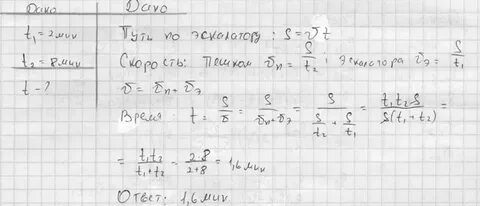 Дано Дано
t₁ = 2 мин Путь по эскалатору: S = υt
t₂ = 8 мин Скорость: Пешком υп = S/t₂; эскалатора υэ = S/t₁
t - ? υ = υп + υэ
Время: t = S/υ = S/(υп + υэ) = S/(S/t₂ + S/t₁) = t₁t₂S/S(t₁ + t₂) =
= t₁t₂/(t₁ + t₂) = 2·8/(2+8) = 1,6 мин
Ответ: 1,6 мин